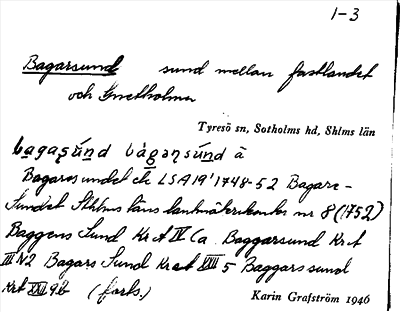 1-3
Bagarsund sund mellan fastlandet
och
Tyresö sn, Sotholms hd, Shlms län
bagaşúnd bàgaņsúnd à
Bagaresundet LSA 19' 1748-52 Bagare-
Sundet Sthlms läns lantmäterikontor nr 8 (1752)
Baggens Sund Krt IV Ca Baggarsund Krt
III N2 Bagars Sund Krt XVII 5 Baggarssund
Krt XVI 9b (forts.)
Karin Grafström 1946